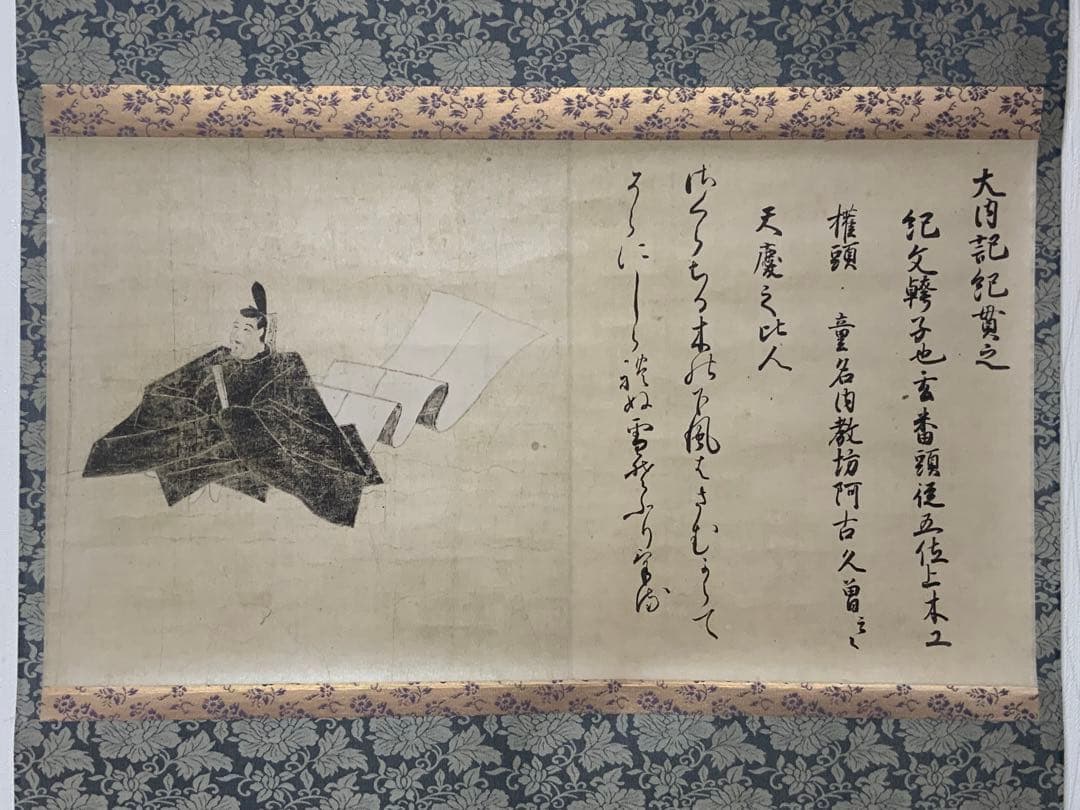 大内記紀貫之
紀文幹子也玄番頭従五位上木工
権頭 童名内教坊阿古久曽云〻
天慶之比人
さくらちる木の下風はさむからて
そらにしられぬ雪そふりける